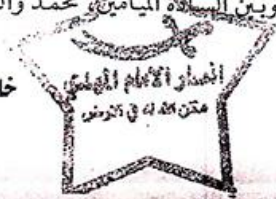 وبين السادة الميامين، محمد وا
أنصار الإمام المهدي
مكن الله له في الأرض
خا